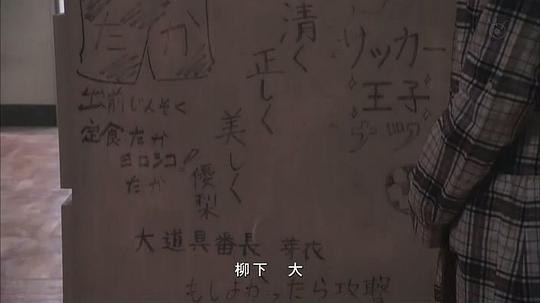 たか
出前じんそく
定食たか
ヨロシコ!
たか
清く
正しく
美しく
優梨
サッカー
王子
大道具番長 芽衣
柳下 大
もしよかったら攻略